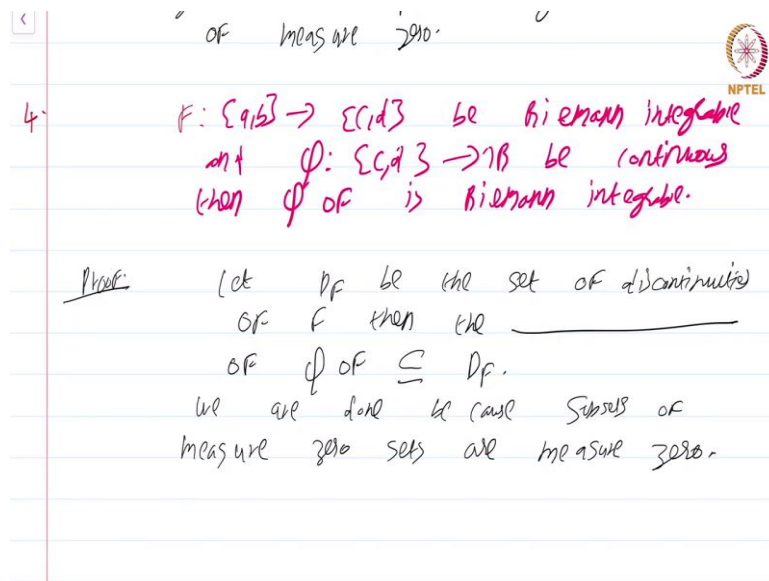 of measure zero.
NPTEL
4.
F: [a,b] → [c,d] be Riemann integrable
and φ: [c,d] → ℝ be continuous
then φ o F is Riemann integrable.
Proof: Let D_F be the set of discontinuities
of F then the ________
of φ o F ⊆ D_F.
We are done because subsets of
measure zero sets are measure zero.